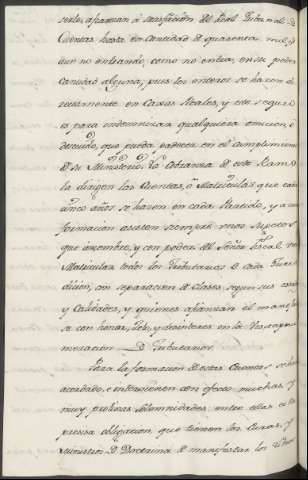 se les afianzan á satisfaccion del Real Tribunal de
Cuentas hasta en cantidad de quarenta mil,
que no entrando, como no entra, en su poder
cantidad alguna, pues los enteros se hacen di-
rectamente en Caxas Reales, y este seguro
es para indemnizar qualquiera omision, ó
descuido, que pueda padecer en el cumplimiento
de su Ministerio. La cobranza de este Ramo
la dirigen las Cuentas, ó Matriculas que con
cinco años se hacen en cada Partido, y a cuya
formacion asisten siempre unos sugetos
que nombre, y con poder del Señor Fiscal
Matriculan todos los Tributarios de cada Juris-
diccion, con separacion de clases segun sus
y Calidades, y quienes afianzan el manejar-
se con honor, zelo, y desinteres en la
numeracion de Tributarios.
Para la formacion de estas Cuentas se han
acordado, é intervienen con efecto muchas, y
muy prolixas solemnidades, entre ellas es
presisa obligacion que tienen los Curas, y
Ministros de Doctrina de manifestar los Libros